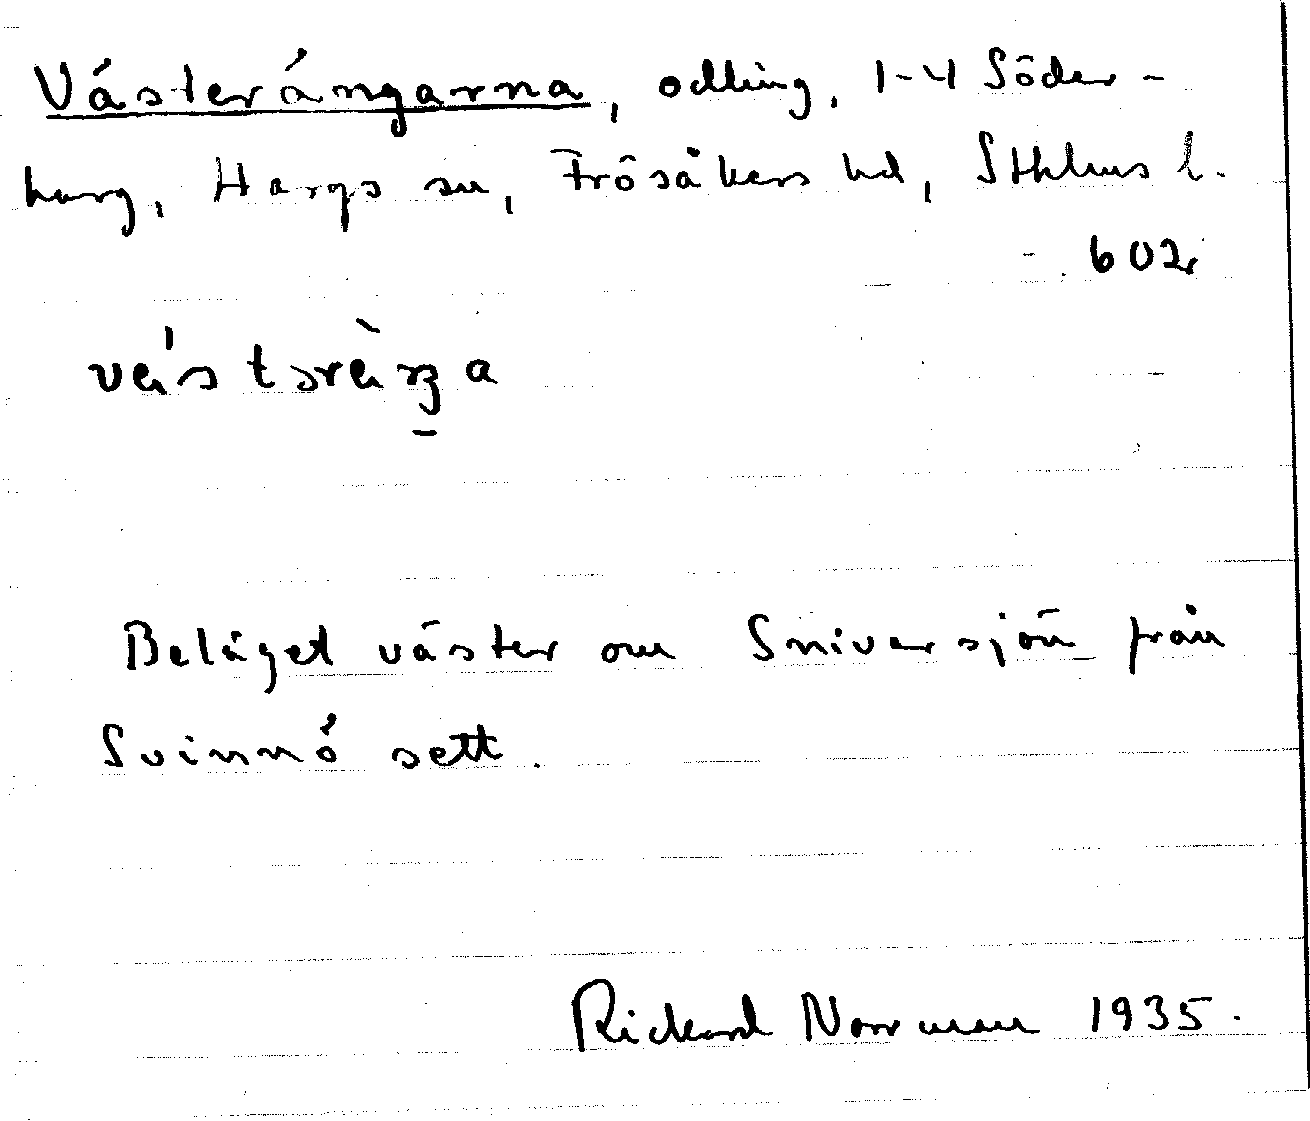 Västerängarna, odling, 1-4 Söder-
harg, Hargs sn, Frösåkers hd, Sthlms l.
602
Beläget väster om Sniversjön från
Svinnö sett.
Rickard Norrman 1935.